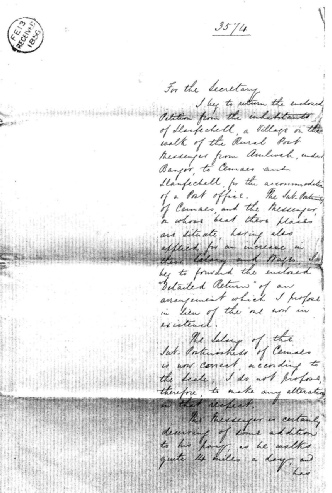 FE 13
RECEIVED
1850
3574
For the Secretary
I beg to return the enclosed
Petition from the inhabitants
of Llanfechell, a Village on the
walk of the Rural Post
Messenger from Amlwch, under
Bangor, to Cemaes and
Llanfechell, for the accommodation
of a Post Office. The Sub. Postmrs
of Cemaes and the Messenger,
on whose beat these places
are situate, having also
applied for an increase in
their Salary and Wages I
beg to forward the enclosed
"Detailed Return" of an
arrangement which I propose
in lieu of the one now in
existence.
The Salary of the
Sub. Postmistress of Cemaes
is now correct, according to
the Scale. I do not propose,
therefore, to make any alteration
in that respect.
The Messenger is certainly
deserving of some addition
to his pay, as he walks
quite 14 miles a day and
has